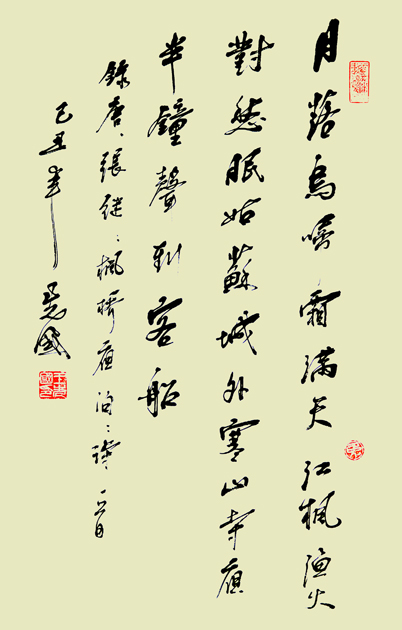 月落烏啼霜滿天江楓漁火
對愁眠姑蘇城外寒山寺夜
半鐘聲到客船
錄唐、張继：楓橋夜泊：詩一首
己丑年 國